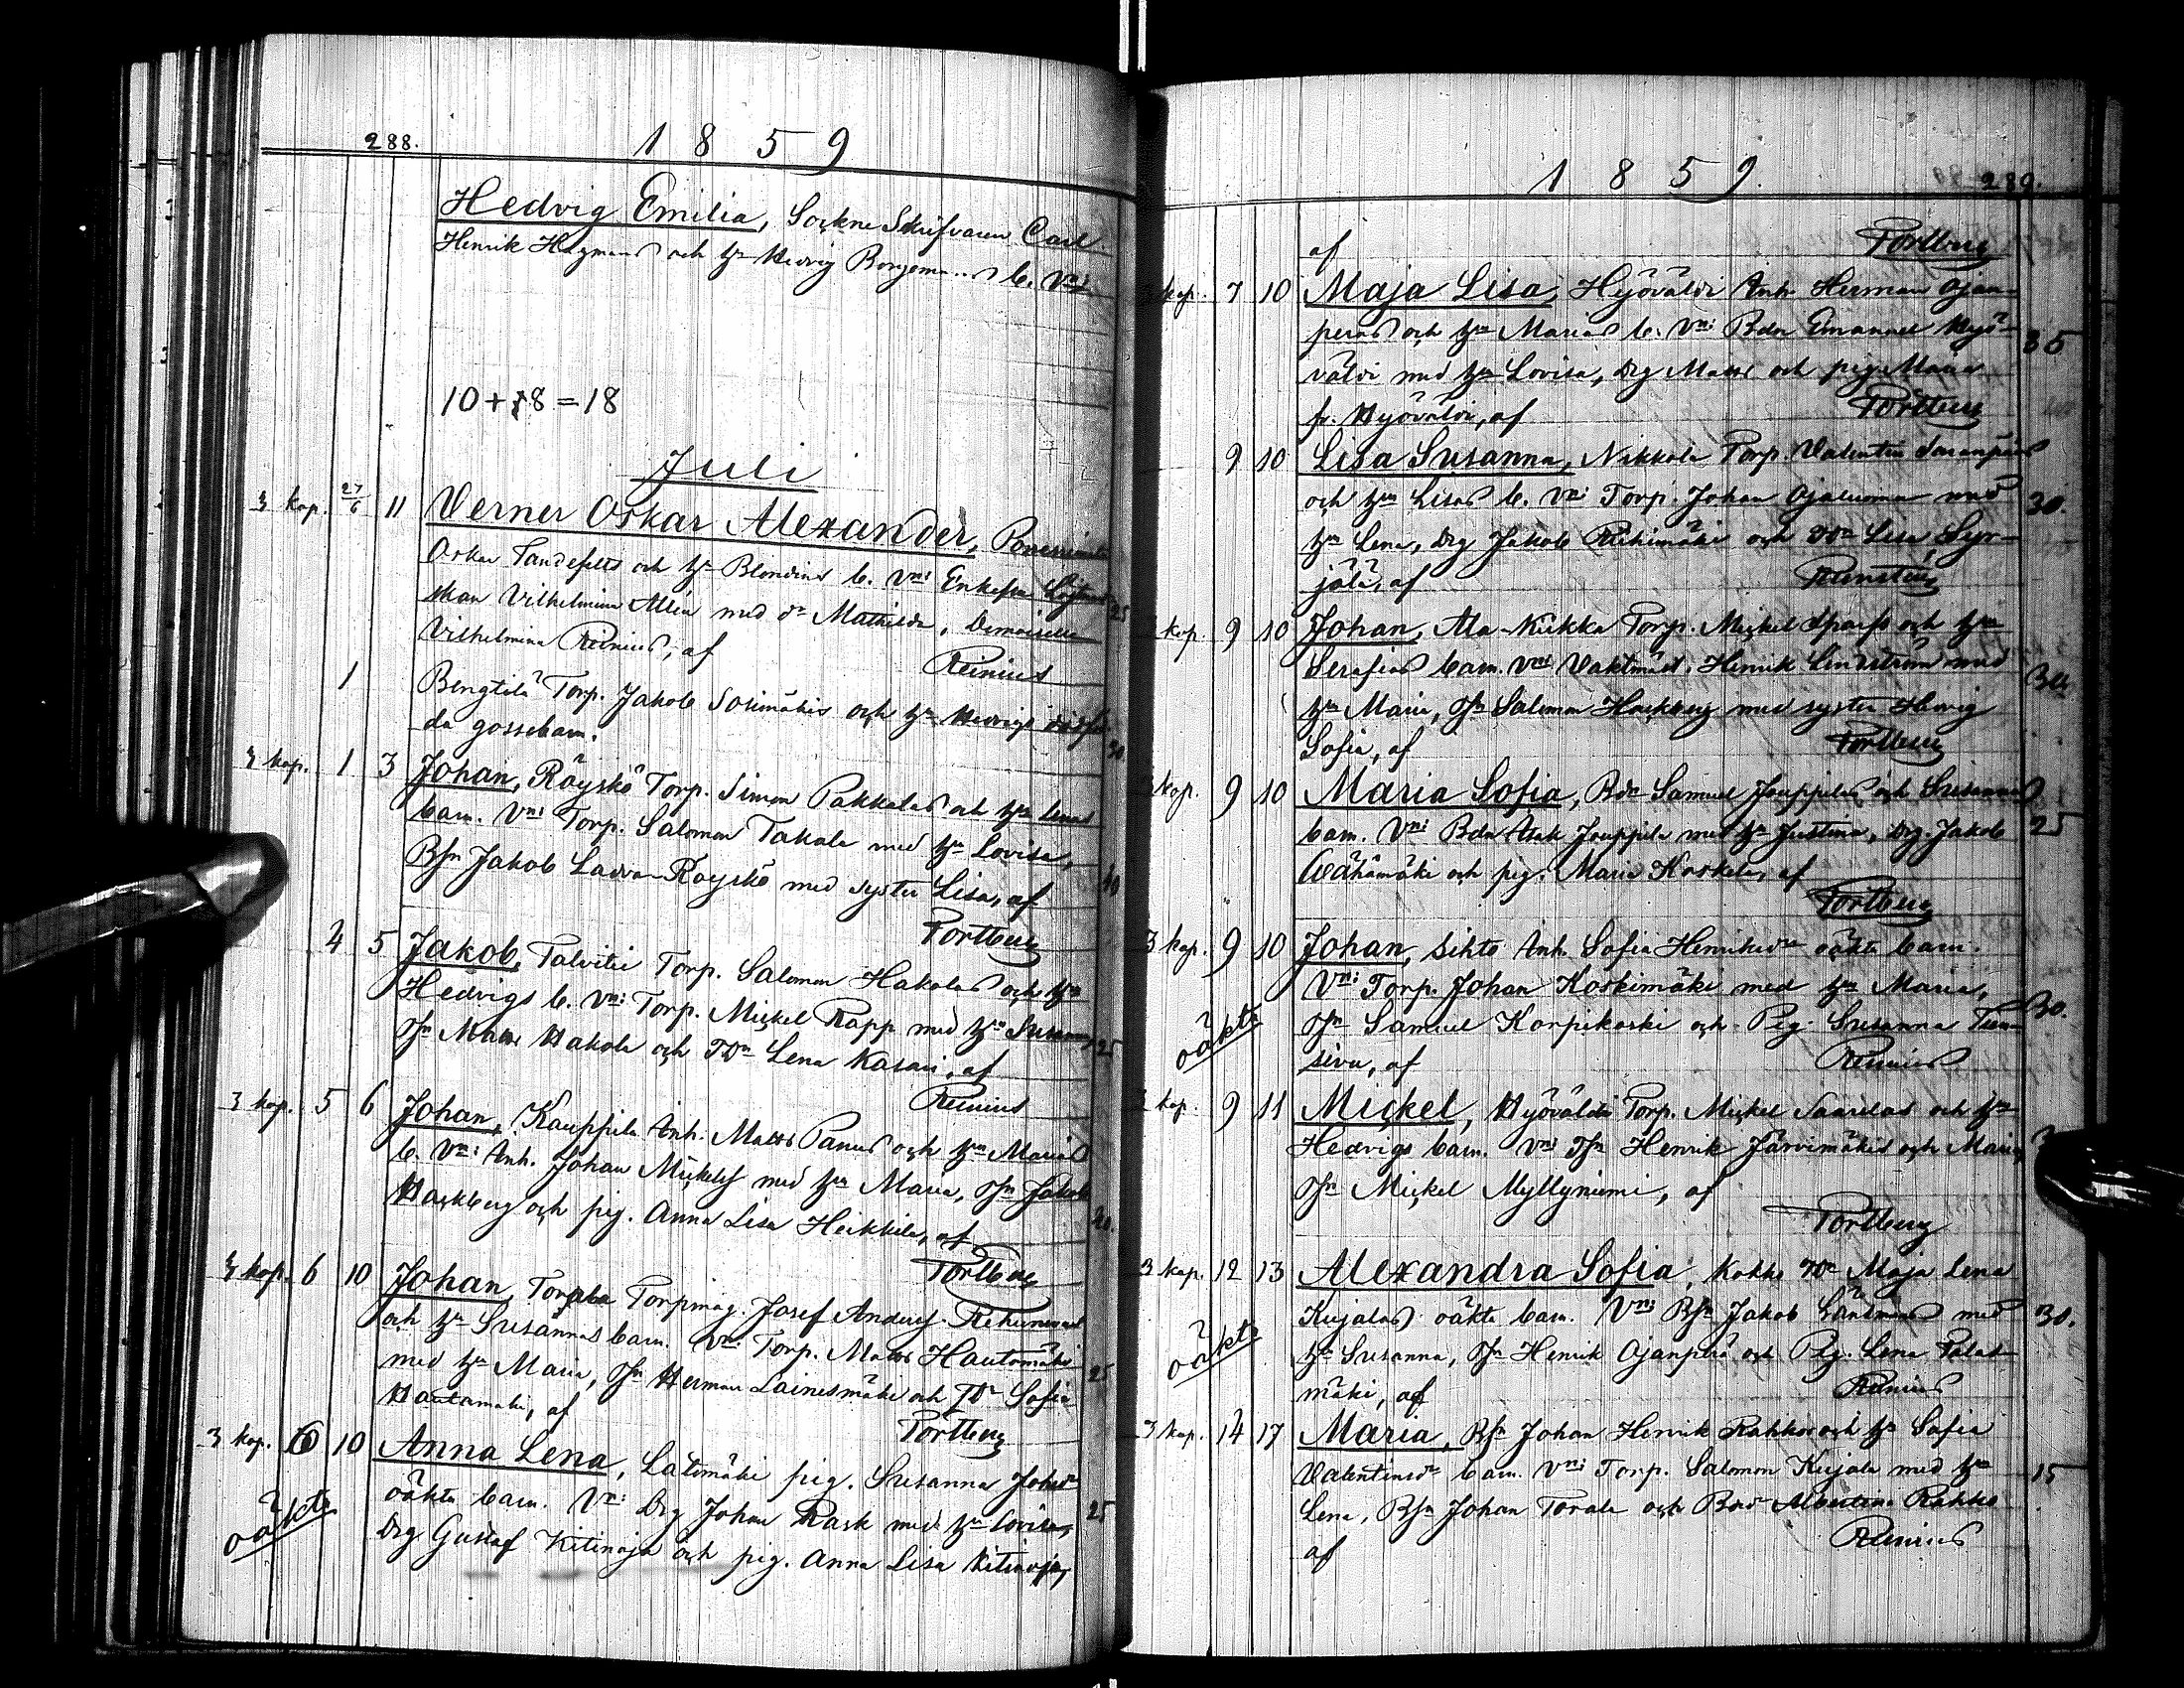 288. 1859
Hedvig Emilia, Sockne Skrifvaren Carl
Henrik Hagmans och h:u Hedvig b. Vn:
10+8=18
Juli
3 kop. 27/6 11 Verner Oskar Alexander,
Oskar Tandefelts och h:u Blondins b. Vn: Enkefru
Vilhelmina med d:r Mathilda, Demoiselle
Vilhelmina Reinius, af Reinius 25
1 Bengtilä Torp. Jakob Sokimäkis och h:u Hedvigs
da gossebarn. 30.
3 kop. 1 3 Johan, Röyskö Torp. Simon Pakkalas och h:u Lenas
barn. Vn: Torp. Salomon Takala med h:u Lovisa,
Bsn Jakob Röyskö med syster Lisa, af 40
Portberg
4 5 Jakob, Talvitie Torp. Salomon Hakolas och h:u
Hedvigs b. Vn: Torp. Mickel Rapp med h:u Susanna,
Matts Hakola och TDr Lena Kasari, af 25
Reinius
3 kop. 5 6 Johan, Kauppila Inh. Matts Panus och h:u Marias
b. Vn: Inh. Johan Mickelsf med h:u Maria, Jakob
Hackberg och pig. Anna Lisa Heikkilä, af
Portberg
3 kop. 6 10 Johan, Torpmåg. Josef Andersf.
och h:u Susannas barn. Vn: Torp. Matts Hautamäki
med h:u Maria, Herman Lainesmäki och TDr Sofia 25
Hautamäki, af Portberg
3 kop. 6 10 Anna Lena, Latomäki pig. Susanna Johsdr
oäkta barn. Vn: Drg Johan Rask med h:u Lovisa, 25
oäkta Drg Gustaf Kitinoja och pig. Anna Lisa Kitinoja,
1859. 289.
af Portberg
kop. 7 10 Maja Lisa, Hyöväldi Inh. Herman Ojan-
peräs och h:u Marias b. Vn: Bdn Emanuel Hyö- 35
väldi med h:u Lovisa, Drg Matts och pig. Maria
fr. Hyöväldi, af Portberg
9 10 Lisa Susanna, Nikkola Torp. Valentin
och h:u Lisas b. Vn: Torp. Johan Ojaluoma med 30.
h:u Lena, Drg Jakob Riihimäki och TDr Lisa Syr-
jälä, af
kop. 9 10 Johan, Ala-Kukka Torp. Mickel och h:u
Serafias barn. Vn: Vaktmäst. Henrik Lindström med
h:u Maria, Salomon Hackberg med syster Hedvig
Sofia, af Portberg
3 kop. 9 10 Maria Sofia, Bdn Samuel Jouppilas och Susannas
barn. Vn: Bdn Isak Jouppila med h:u Justina, Drg. Jakob 25
och pig. Maria Koskela, af
Portberg
3 kop. 9 10 Johan, Sihto Inh. Sofia Henriksdr oäkta barn.
Vn: Torp. Johan Koskimäki med h:u Maria, 30.
oäkta Samuel Korpikoski och Pig. Susanna
sivu, af Reinius
kop. 9 11 Mickel, Hyöväldi Torp. Mickel Saarelas och h:u
Hedvigs barn. Vn: Henrik Järvimäkis och Maria,
Mickel Myllyniemi, af
Portberg
3 kop. 12 13 Alexandra Sofia, Kokko TDr Maja Lena
Kujalas oäkta barn. Vn: Bsn Jakob med 30.
oäkta h:u Susanna, Henrik Ojanperä och Pig. Lena Palat-
mäki, af Reinius
3 kop. 14 17 Maria, Bsn Johan Henrik Rahkos och h:u Sofia
Valentinsdr barn. Vn: Torp. Salomon Kujala med h:u 15
Lena, Bsn Johan Torala och Bdr Albertina Rahko
af Reinius